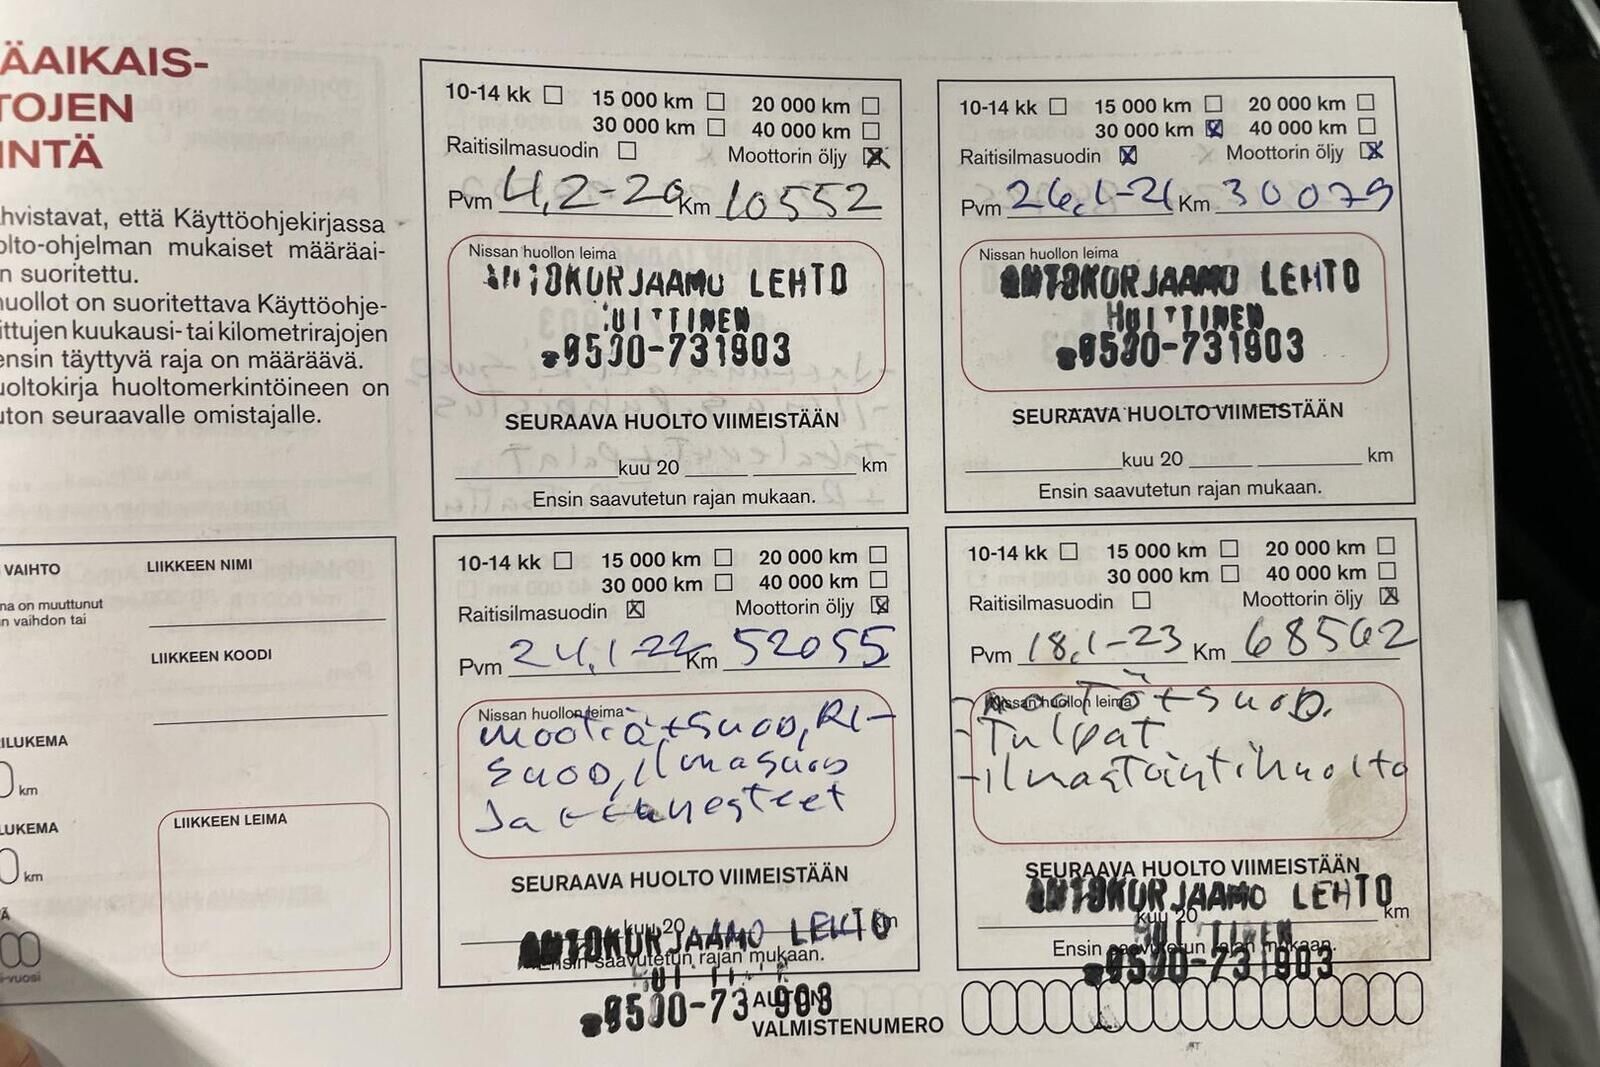 ÄAIKAIS-
TOJEN
INTÄ
hvistavat, että Käyttöohjekirjassa
olto-ohjelman mukaiset määräai-
n suoritettu.
huollot on suoritettava Käyttöohje-
ittujen kuukausi- tai kilometrirajojen
ensin täyttyvä raja on määräävä.
uoltokirja huoltomerkintöineen on
uton seuraavalle omistajalle.
VAIHTO
na on muuttunut
n vaihdon tai
LIIKKEEN NIMI
LIIKKEEN KOODI
RILUKEMA
km
LUKEMA
km
Ä
i-vuosi
LIIKKEEN LEIMA
10-14 kk 15 000 km 20 000 km
30 000 km 40 000 km
Raitisilmasuodin Moottorin öljy
Pvm 4,2-20 Km 10552
Nissan huollon leima
AUTOKORJAAMO LEHTO
HUITTINEN
0500-731903
SEURAAVA HUOLTO VIIMEISTÄÄN
kuu 20 km
Ensin saavutetun rajan mukaan.
10-14 kk 15 000 km 20 000 km
30 000 km 40 000 km
Raitisilmasuodin Moottorin öljy
Pvm 26,1-21 Km 30079
Nissan huollon leima
AUTOKORJAAMO LEHTO
HUITTINEN
0500-731903
SEURAAVA HUOLTO VIIMEISTÄÄN
kuu 20 km
Ensin saavutetun rajan mukaan.
10-14 kk 15 000 km 20 000 km
30 000 km 40 000 km
Raitisilmasuodin Moottorin öljy
Pvm 24,1-22 Km 52055
Nissan huollon leima
+suod, RI-
suod, ilmasuod
Ja nesteet
SEURAAVA HUOLTO VIIMEISTÄÄN
kuu 20 km
AUTOKORJAAMO LEHTO
Ensin saavutetun rajan mukaan.
0500-731903
10-14 kk 15 000 km 20 000 km
30 000 km 40 000 km
Raitisilmasuodin Moottorin öljy
Pvm 18,1-23 Km 68562
Nissan huollon leima
+suod.
-Tulpat
-ilmastointihuolto
SEURAAVA HUOLTO VIIMEISTÄÄN
AUTOKORJAAMO LEHTO
kuu 20 km
HUITTINEN
Ensin saavutetun rajan mukaan.
0500-731903
AUTON
VALMISTENUMERO